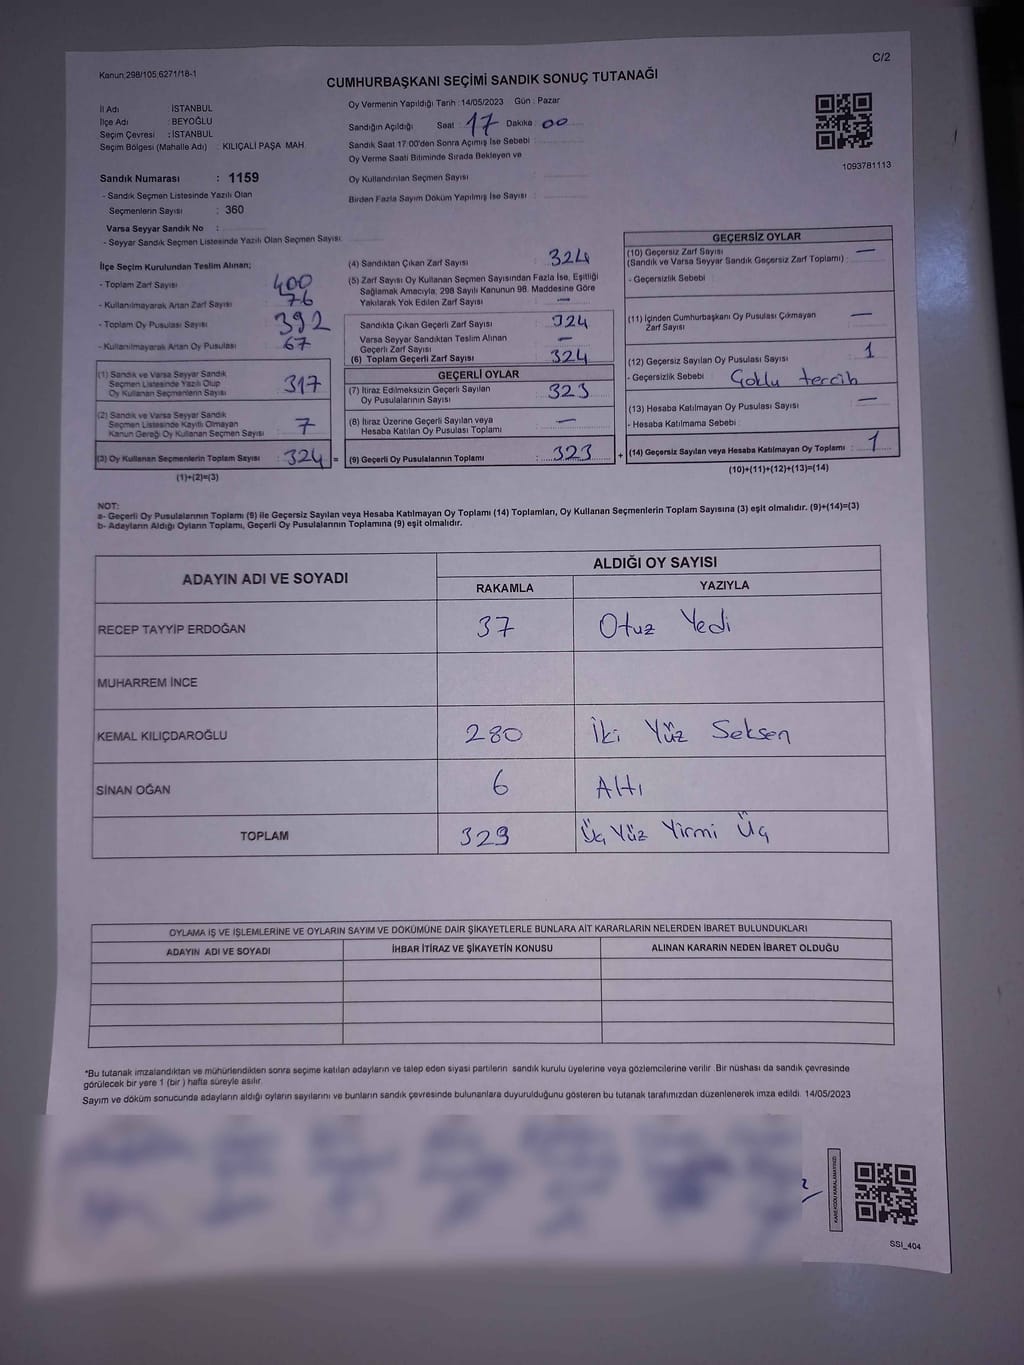 Kanun,298/105,6271/18-1
C/2
CUMHURBAŞKANI SEÇİMİ SANDIK SONUÇ TUTANAĞI
İl Adı : İSTANBUL
İlçe Adı : BEYOĞLU
Seçim Çevresi : İSTANBUL
Seçim Bölgesi (Mahalle Adı) : KILIÇALİ PAŞA MAH.
Sandık Numarası : 1159
- Sandık Seçmen Listesinde Yazılı Olan
Seçmenlerin Sayısı : 360
Varsa Seyyar Sandık No :
- Seyyar Sandık Seçmen Listesinde Yazılı Olan Seçmen Sayısı:
Oy Vermenin Yapıldığı Tarih : 14/05/2023 Gün : Pazar
Sandığın Açıldığı Saat : 17 Dakika : 00
Sandık Saat 17:00'den Sonra Açımış İse Sebebi :
Oy Verme Saati Bitiminde Sırada Bekleyen ve
Oy Kullandırılan Seçmen Sayısı :
Birden Fazla Sayım Döküm Yapılmış İse Sayısı :
1093781113
İlçe Seçim Kurulundan Teslim Alınan;
- Toplam Zarf Sayısı : 400
- Kullanılmayarak Artan Zarf Sayısı : 76
- Toplam Oy Pusulası Sayısı : 392
- Kullanılmayarak Artan Oy Pusulası : 67
(1) Sandık ve Varsa Seyyar Sandık
Seçmen Listesinde Yazılı Olup
Oy Kullanan Seçmenlerin Sayısı : 317
(2) Sandık ve Varsa Seyyar Sandık
Seçmen Listesinde Kayıtlı Olmayan
Kanun Gereği Oy Kullanan Seçmen Sayısı : 7
(3) Oy Kullanan Seçmenlerin Toplam Sayısı : 324 =
(1)+(2)=(3)
(4) Sandıktan Çıkan Zarf Sayısı : 324
(5) Zarf Sayısı Oy Kullanan Seçmen Sayısından Fazla İse, Eşitliği
Sağlamak Amacıyla, 298 Sayılı Kanunun 98. Maddesine Göre
Yakılarak Yok Edilen Zarf Sayısı : —
Sandıkta Çıkan Geçerli Zarf Sayısı : 324
Varsa Seyyar Sandıktan Teslim Alınan
Geçerli Zarf Sayısı : —
(6) Toplam Geçerli Zarf Sayısı : 324
GEÇERLİ OYLAR
(7) İtiraz Edilmeksizin Geçerli Sayılan
Oy Pusulalarının Sayısı : 323
(8) İtiraz Üzerine Geçerli Sayılan veya
Hesaba Katılan Oy Pusulası Toplamı : —
(9) Geçerli Oy Pusulalarının Toplamı : 323 +
GEÇERSİZ OYLAR
(10) Geçersiz Zarf Sayısı
(Sandık ve Varsa Seyyar Sandık Geçersiz Zarf Toplamı) : —
- Geçersizlik Sebebi :
(11) İçinden Cumhurbaşkanı Oy Pusulası Çıkmayan
Zarf Sayısı : —
(12) Geçersiz Sayılan Oy Pusulası Sayısı : 1
- Geçersizlik Sebebi : Çoklu tercih
(13) Hesaba Katılmayan Oy Pusulası Sayısı : —
- Hesaba Katılmama Sebebi :
(14) Geçersiz Sayılan veya Hesaba Katılmayan Oy Toplamı : 1
(10)+(11)+(12)+(13)=(14)
NOT:
a- Geçerli Oy Pusulalarının Toplamı (9) ile Geçersiz Sayılan veya Hesaba Katılmayan Oy Toplamı (14) Toplamları, Oy Kullanan Seçmenlerin Toplam Sayısına (3) eşit olmalıdır. (9)+(14)=(3)
b- Adayların Aldığı Oyların Toplamı, Geçerli Oy Pusulalarının Toplamına (9) eşit olmalıdır.
ADAYIN ADI VE SOYADI
ALDIĞI OY SAYISI
RAKAMLA YAZIYLA
RECEP TAYYİP ERDOĞAN 37 Otuz Yedi
MUHARREM İNCE
KEMAL KILIÇDAROĞLU 280 İki Yüz Seksen
SİNAN OĞAN 6 Altı
TOPLAM 323 Üç Yüz Yirmi Üç
OYLAMA İŞ VE İŞLEMLERİNE VE OYLARIN SAYIM VE DÖKÜMÜNE DAİR ŞİKAYETLERLE BUNLARA AİT KARARLARIN NELERDEN İBARET BULUNDUKLARI
ADAYIN ADI VE SOYADI İHBAR İTİRAZ VE ŞİKAYETİN KONUSU ALINAN KARARIN NEDEN İBARET OLDUĞU
*Bu tutanak imzalandıktan ve mühürlendikten sonra seçime katılan adayların ve talep eden siyasi partilerin sandık kurulu üyelerine veya gözlemcilerine verilir. Bir nüshası da sandık çevresinde
görülecek bir yere 1 (bir ) hafta süreyle asılır.
Sayım ve döküm sonucunda adayların aldığı oyların sayılarını ve bunların sandık çevresinde bulunanlara duyurulduğunu gösteren bu tutanak tarafımızdan düzenlenerek imza edildi. 14/05/2023
KAREKODU KARALAMAYINIZ!
SSI_404